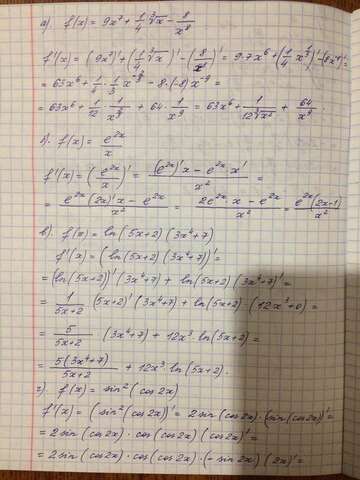 а). f(x) = 9x⁷ + 1/4 ∛x − 8/x⁸
f'(x) = (9x⁷)' + (1/4 ∛x)' − (8/x⁸)' = 9·7x⁶ + (1/4 x^(1/3))' − (8x⁻⁸)' =
= 63x⁶ + 1/4 · 1/3 x^(−2/3) − 8·(−8)x⁻⁹ =
= 63x⁶ + 1/12 · 1/x^(2/3) + 64 · 1/x⁹ = 63x⁶ + 1/(12∛x²) + 64/x⁹.
б). f(x) = e^(2x)/x
f'(x) = (e^(2x)/x)' = ((e^(2x))' x − e^(2x) · x')/x² =
= (e^(2x) (2x)' x − e^(2x))/x² = (2e^(2x) · x − e^(2x))/x² = e^(2x)(2x−1)/x²
в). f(x) = ln(5x+2)(3x⁴+7)
f'(x) = (ln(5x+2)(3x⁴+7))' =
= (ln(5x+2))' (3x⁴+7) + ln(5x+2)(3x⁴+7)' =
= 1/(5x+2) (5x+2)' (3x⁴+7) + ln(5x+2) (12x³+0) =
= 5/(5x+2) (3x⁴+7) + 12x³ ln(5x+2) =
= 5(3x⁴+7)/(5x+2) + 12x³ ln(5x+2).
г). f(x) = sin²(cos2x)
f'(x) = (sin²(cos2x))' = 2sin(cos2x)·(sin(cos2x))' =
= 2sin(cos2x)·cos(cos2x)(cos2x)' =
= 2sin(cos2x)·cos(cos2x)·(−sin2x)(2x)' =